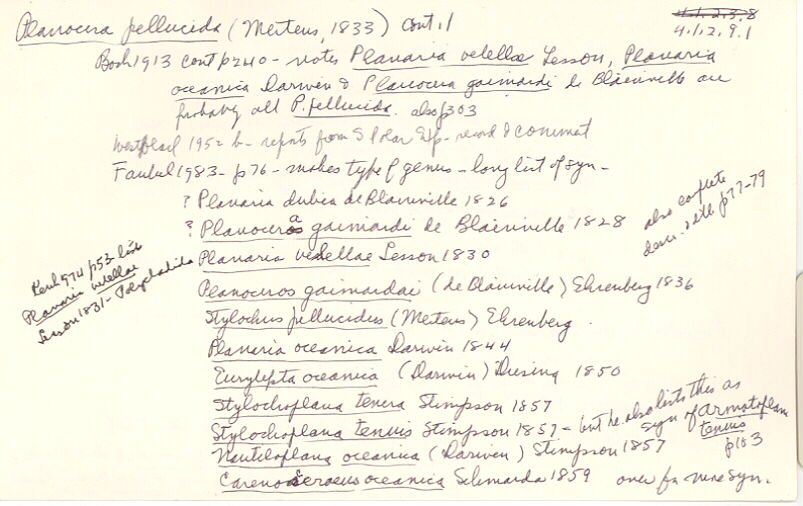 Planocera pellucida (Mertens, 1833) cont.
4.1.2.3.8
4.1.2.9.1
Bock 1913 cont p240 - notes Planaria velellae Lesson, Planaria
oceanica Darwin & Planocera gaimardi de Blainville are
probably all P. pellucida. also p303
Westblad 1952 b - reports from S Polar Exp - record & comment
Faubel 1983 - p76 - makes type of genus - long list of syn -
? Planaria dubia de Blainville 1826
? Planocera gaimardi de Blainville 1828
also complete
desc. p77-79
Planaria velellae Lesson 1830
p53 list
Planaria velellae
Lesson 1831 - Polycladida
Planoceros gaimardai (de Blainville) Ehrenberg 1836
Stylochus pellucidus (Mertens) Ehrenberg .
Planaria oceanica Darwin 1844
Eurylepta oceanica (Darwin) Diesing 1850
Stylochoplana tenera Stimpson 1857
Stylochoplana tenuis Stimpson 1857 - but he also lists this as
syn of Armatoplana
tenuis
p103
Nautiloplana oceanica (Darwin) Stimpson 1857
Carenoceraeus oceanica Schmarda 1859 over for more syn.